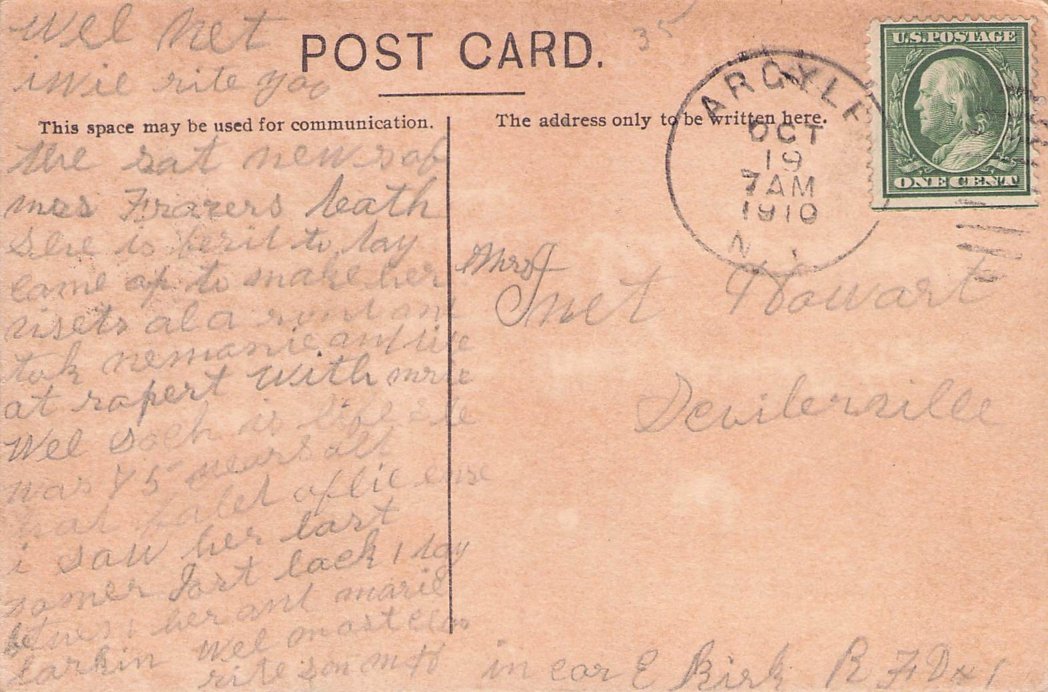 Wel Net
i Wil rite yoo
POST CARD.
35
This space may be used for communication.
The address only to be written here.
ARGYLE
OCT
19
7AM
1910
N.
U.S. POSTAGE
ONE CENT
the sat news of
mrs Frazers Death
She is beril to day
came up to make her
visets al a rount an
tok nemonie ant live
at rapert With mrie
Wel soch is life she
was 85 years alt
hat falet
i saw her last
somer Jost back 1 day
her ant marie
larkin Wel mast
rite son
Mrs J
Net Howart
Devilersville
in car E Kirk R F D # 1